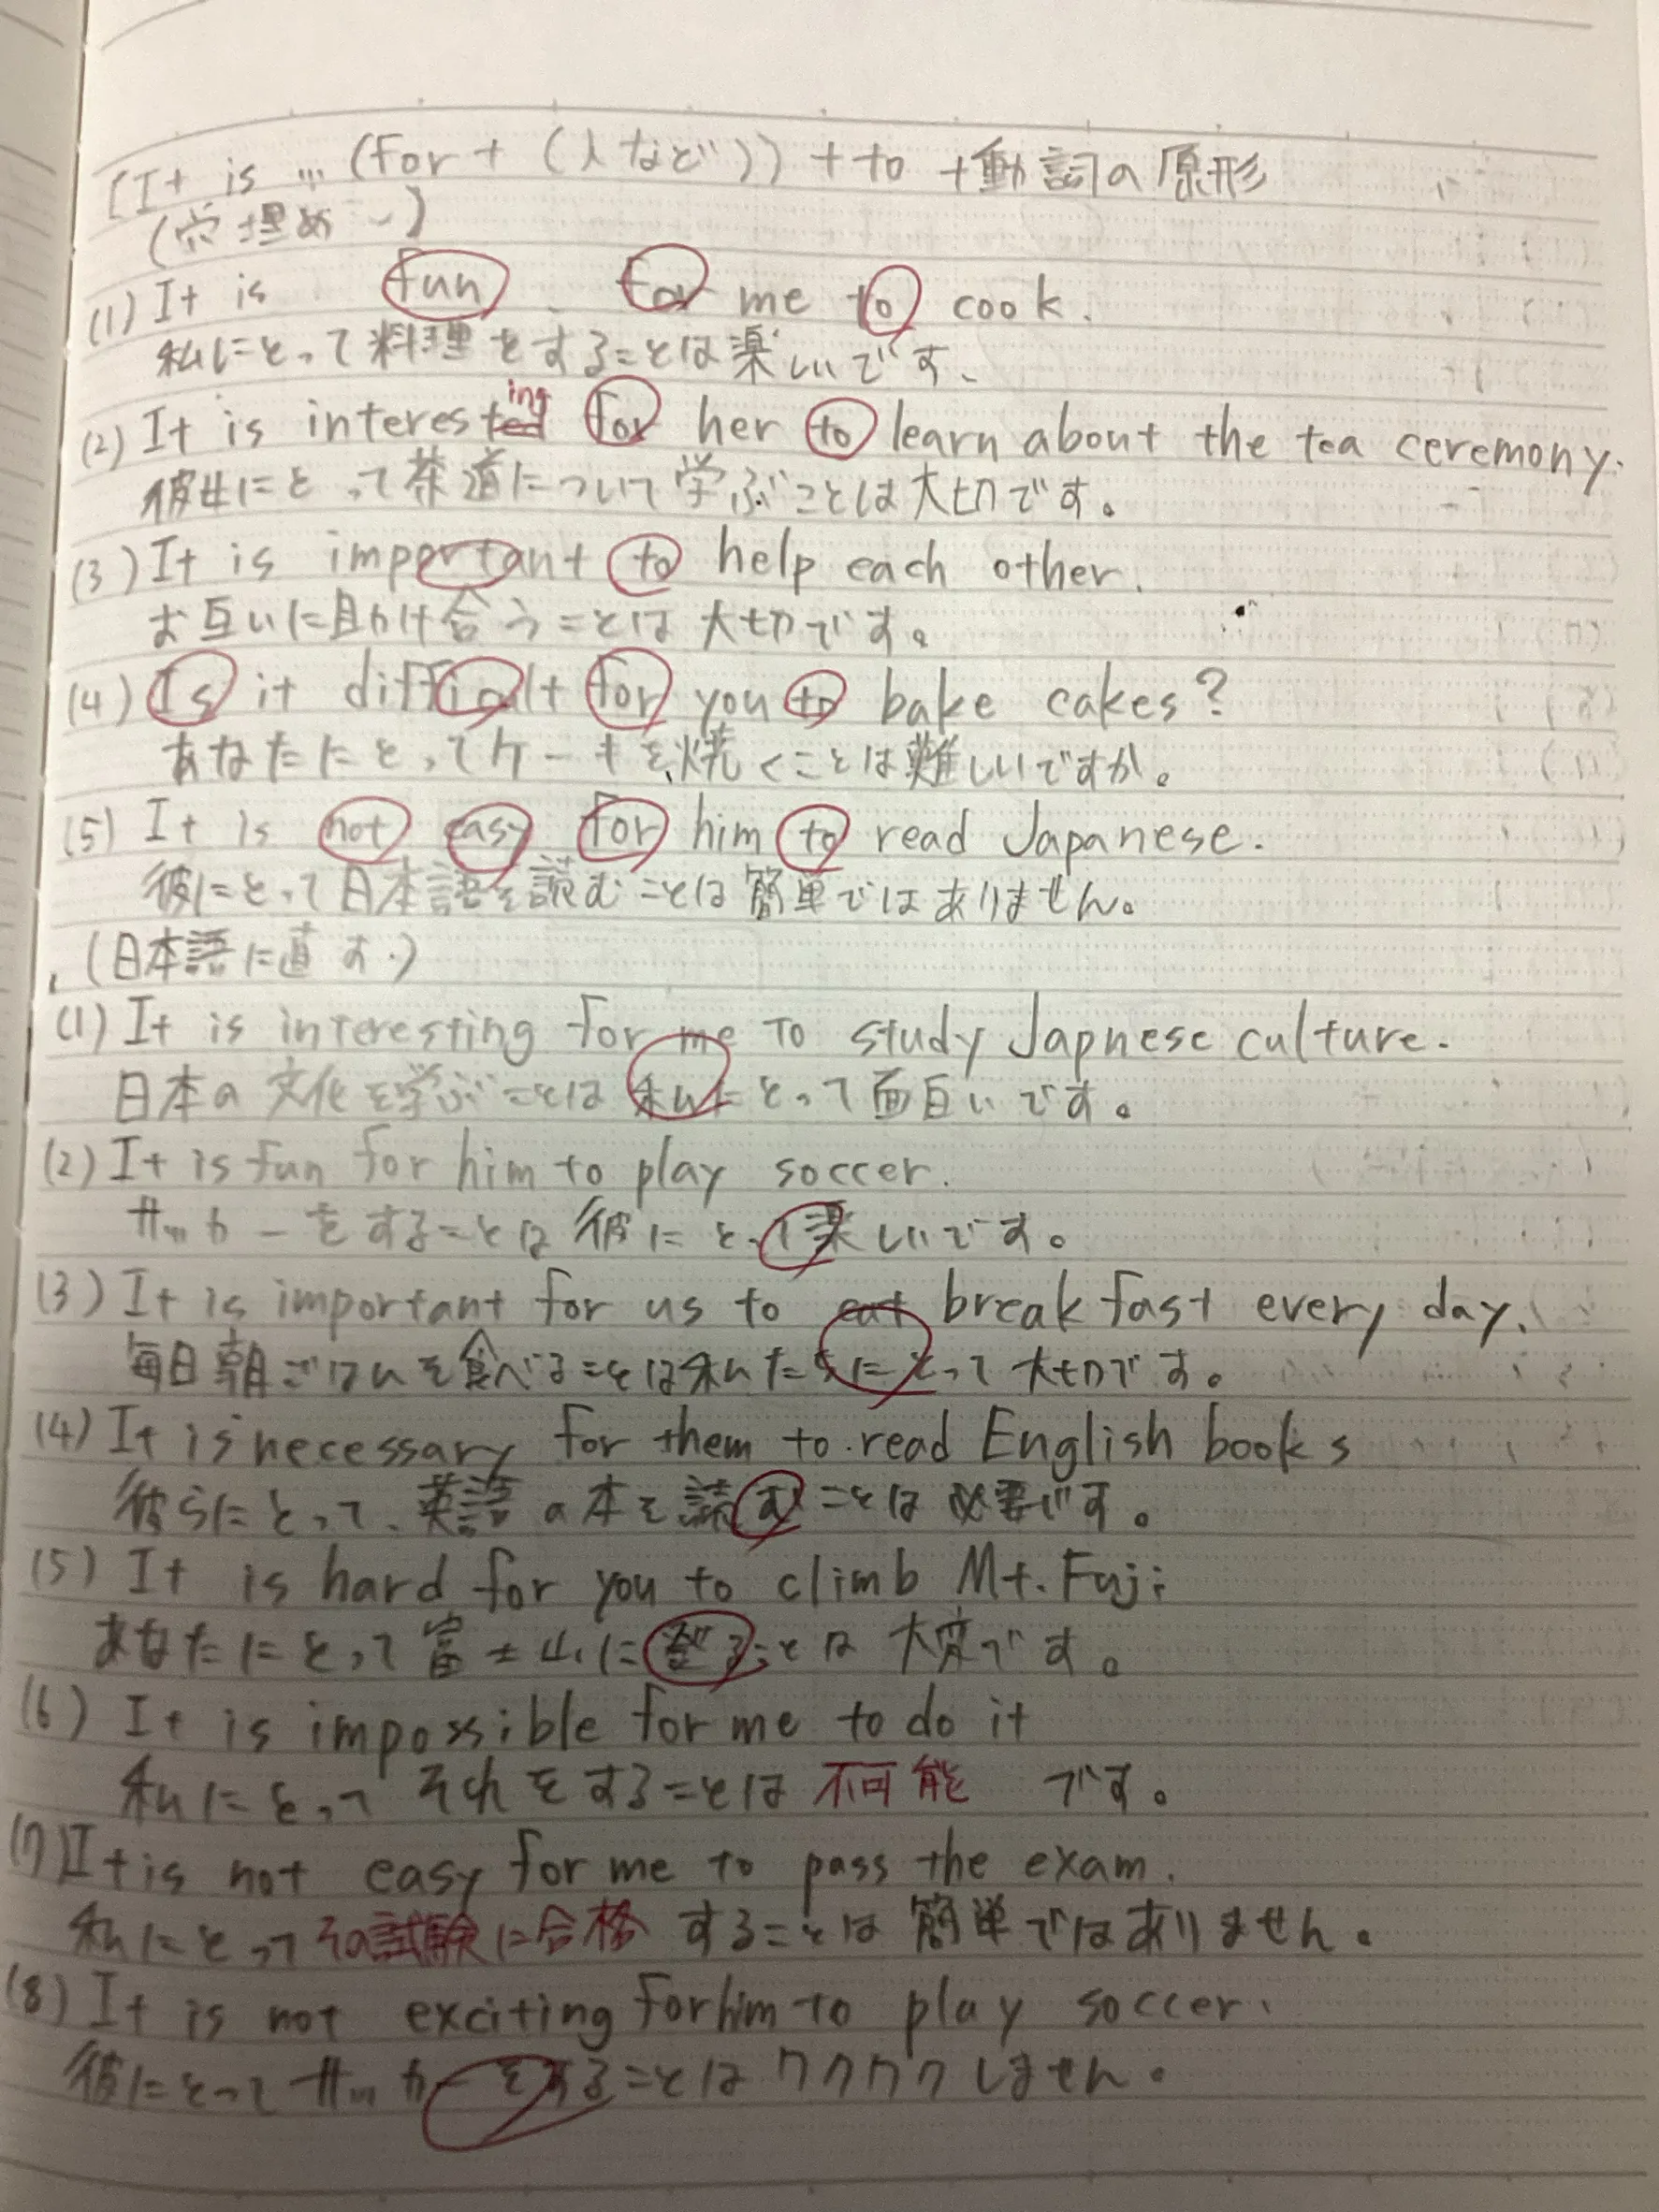 [It is … (for + (人など)) + to +動詞の原形
(穴埋め)]
(1) It is fun for me to cook.
私にとって料理をすることは楽しいです。
(2) It is interested ing for her to learn about the tea ceremony.
彼女にとって茶道について学ぶことは大切です。
(3) It is important to help each other.
お互いに助け合うことは大切です。
(4) Is it difficult for you to bake cakes?
あなたにとってケーキを焼くことは難しいですか。
(5) It is not easy for him to read Japanese.
彼にとって日本語を読むことは簡単ではありません。
(日本語に直す)
(1) It is interesting for me to study Japnese culture.
日本の文化を学ぶことは私にとって面白いです。
(2) It is fun for him to play soccer.
サッカーをすることは彼にとって楽しいです。
(3) It is important for us to eat breakfast every day.
毎日朝ごはんを食べることは私たちにとって大切です。
(4) It is necessary for them to read English books
彼らにとって、英語の本を読むことは必要です。
(5) It is hard for you to climb Mt. Fuji
あなたにとって富士山に登ることは大変です。
(6) It is impossible for me to do it
私にとってそれをすることは不可能です。
(7) It is not easy for me to pass the exam.
私にとってその試験に合格することは簡単ではありません。
(8) It is not exciting for him to play soccer.
彼にとってサッカーをすることはワクワクしません。